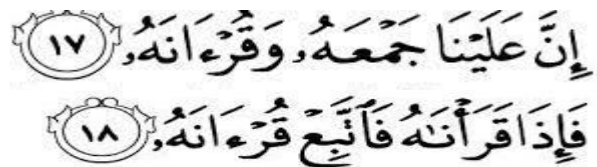 إِنَّ عَلَيْنَا جَمْعَهُۥ وَقُرْءَانَهُۥ ١٧
فَإِذَا قَرَأْنَٰهُ فَٱتَّبِعْ قُرْءَانَهُۥ ١٨